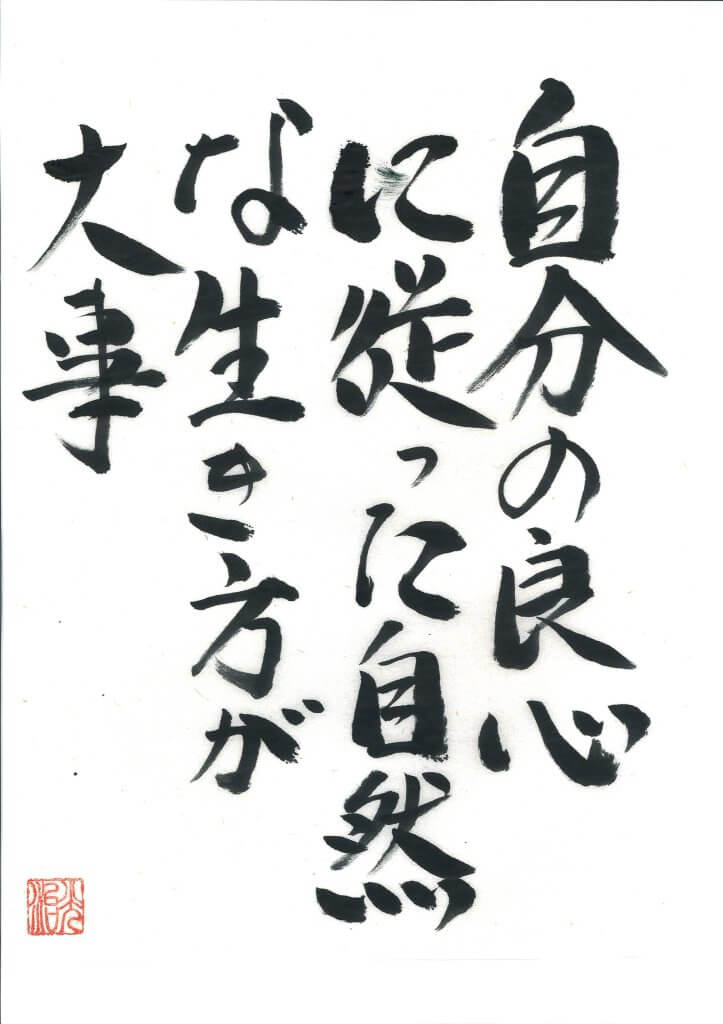 自分の良心
に従った自然
な生き方が
大事